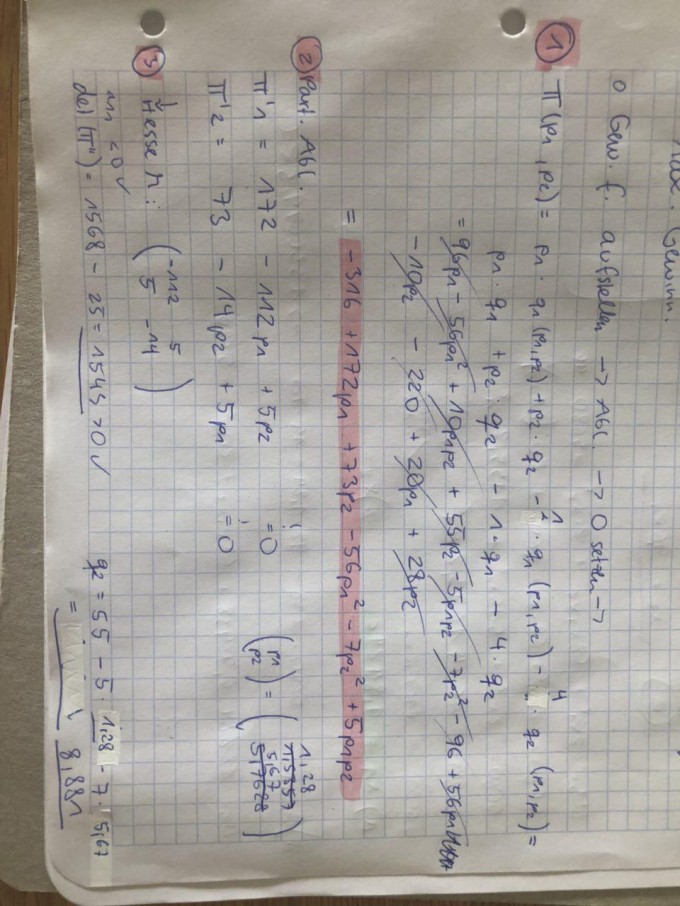 Max. Gewinn.
o Gew. f. aufstellen → Abl. → 0 setzen →
① π(p1, p2) = p1 · q1 (p1,p2) + p2 · q2 - 1 · q1 (p1,p2) - 4 · q2 (p1,p2) =
p1 · q1 + p2 · q2 - 1 · q1 - 4 · q2
= 96p1 - 56p1² + 10p1p2 + 55p2 - 5p1p2 - 7p2² - 96 + 56p1
- 10p2 - 220 + 20p1 + 28p2
= -316 + 172p1 + 73p2 - 56p1² - 7p2² + 5p1p2
② Part. Abl.
π'1 = 172 - 112p1 + 5p2 != 0
π'2 = 73 - 14p2 + 5p1 != 0
(p1 p2) = (1,28 1,5357 5,67 5,7628)
③ Hesse M: (-112 5
5 -14)
m1 < 0 ✓
det(π'') = 1568 - 25 = 1545 > 0 ✓
q2 = 55 - 5 · 1,28 - 7 · 5,67
= 8,881